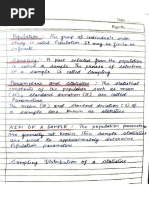 Date
Page No.
Population - The group of individuals under
study is called Population. It may be finite or
infinite.
Sampling - A part selected from the population
is called a sample. The process of selection
of a sample is called Sampling.
Parameters and Statistics - The statistical
constants of the population such as mean
, standard deviation are called
Parameters.
The mean and standard deviation
of a sample are known as Statistics.
AIM OF A SAMPLE - The population parameters
are generally not known. The sample statistics
are used to approximately determine
Population.
Sampling Distribution of a Statistics